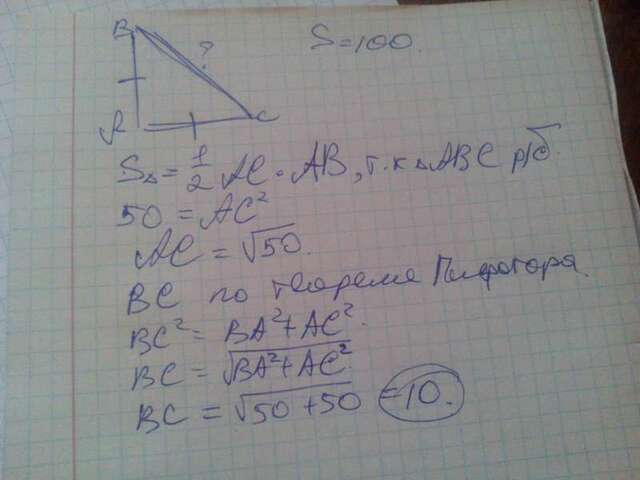 B
?
S=100.
A
C
S△ = 1/2 AC · AB, т.к △ABC р/б.
50 = AC²
AC = √50.
BC по теореме Пифагора.
BC² = BA² + AC².
BC = √BA² + AC²
BC = √50 + 50 = 10.